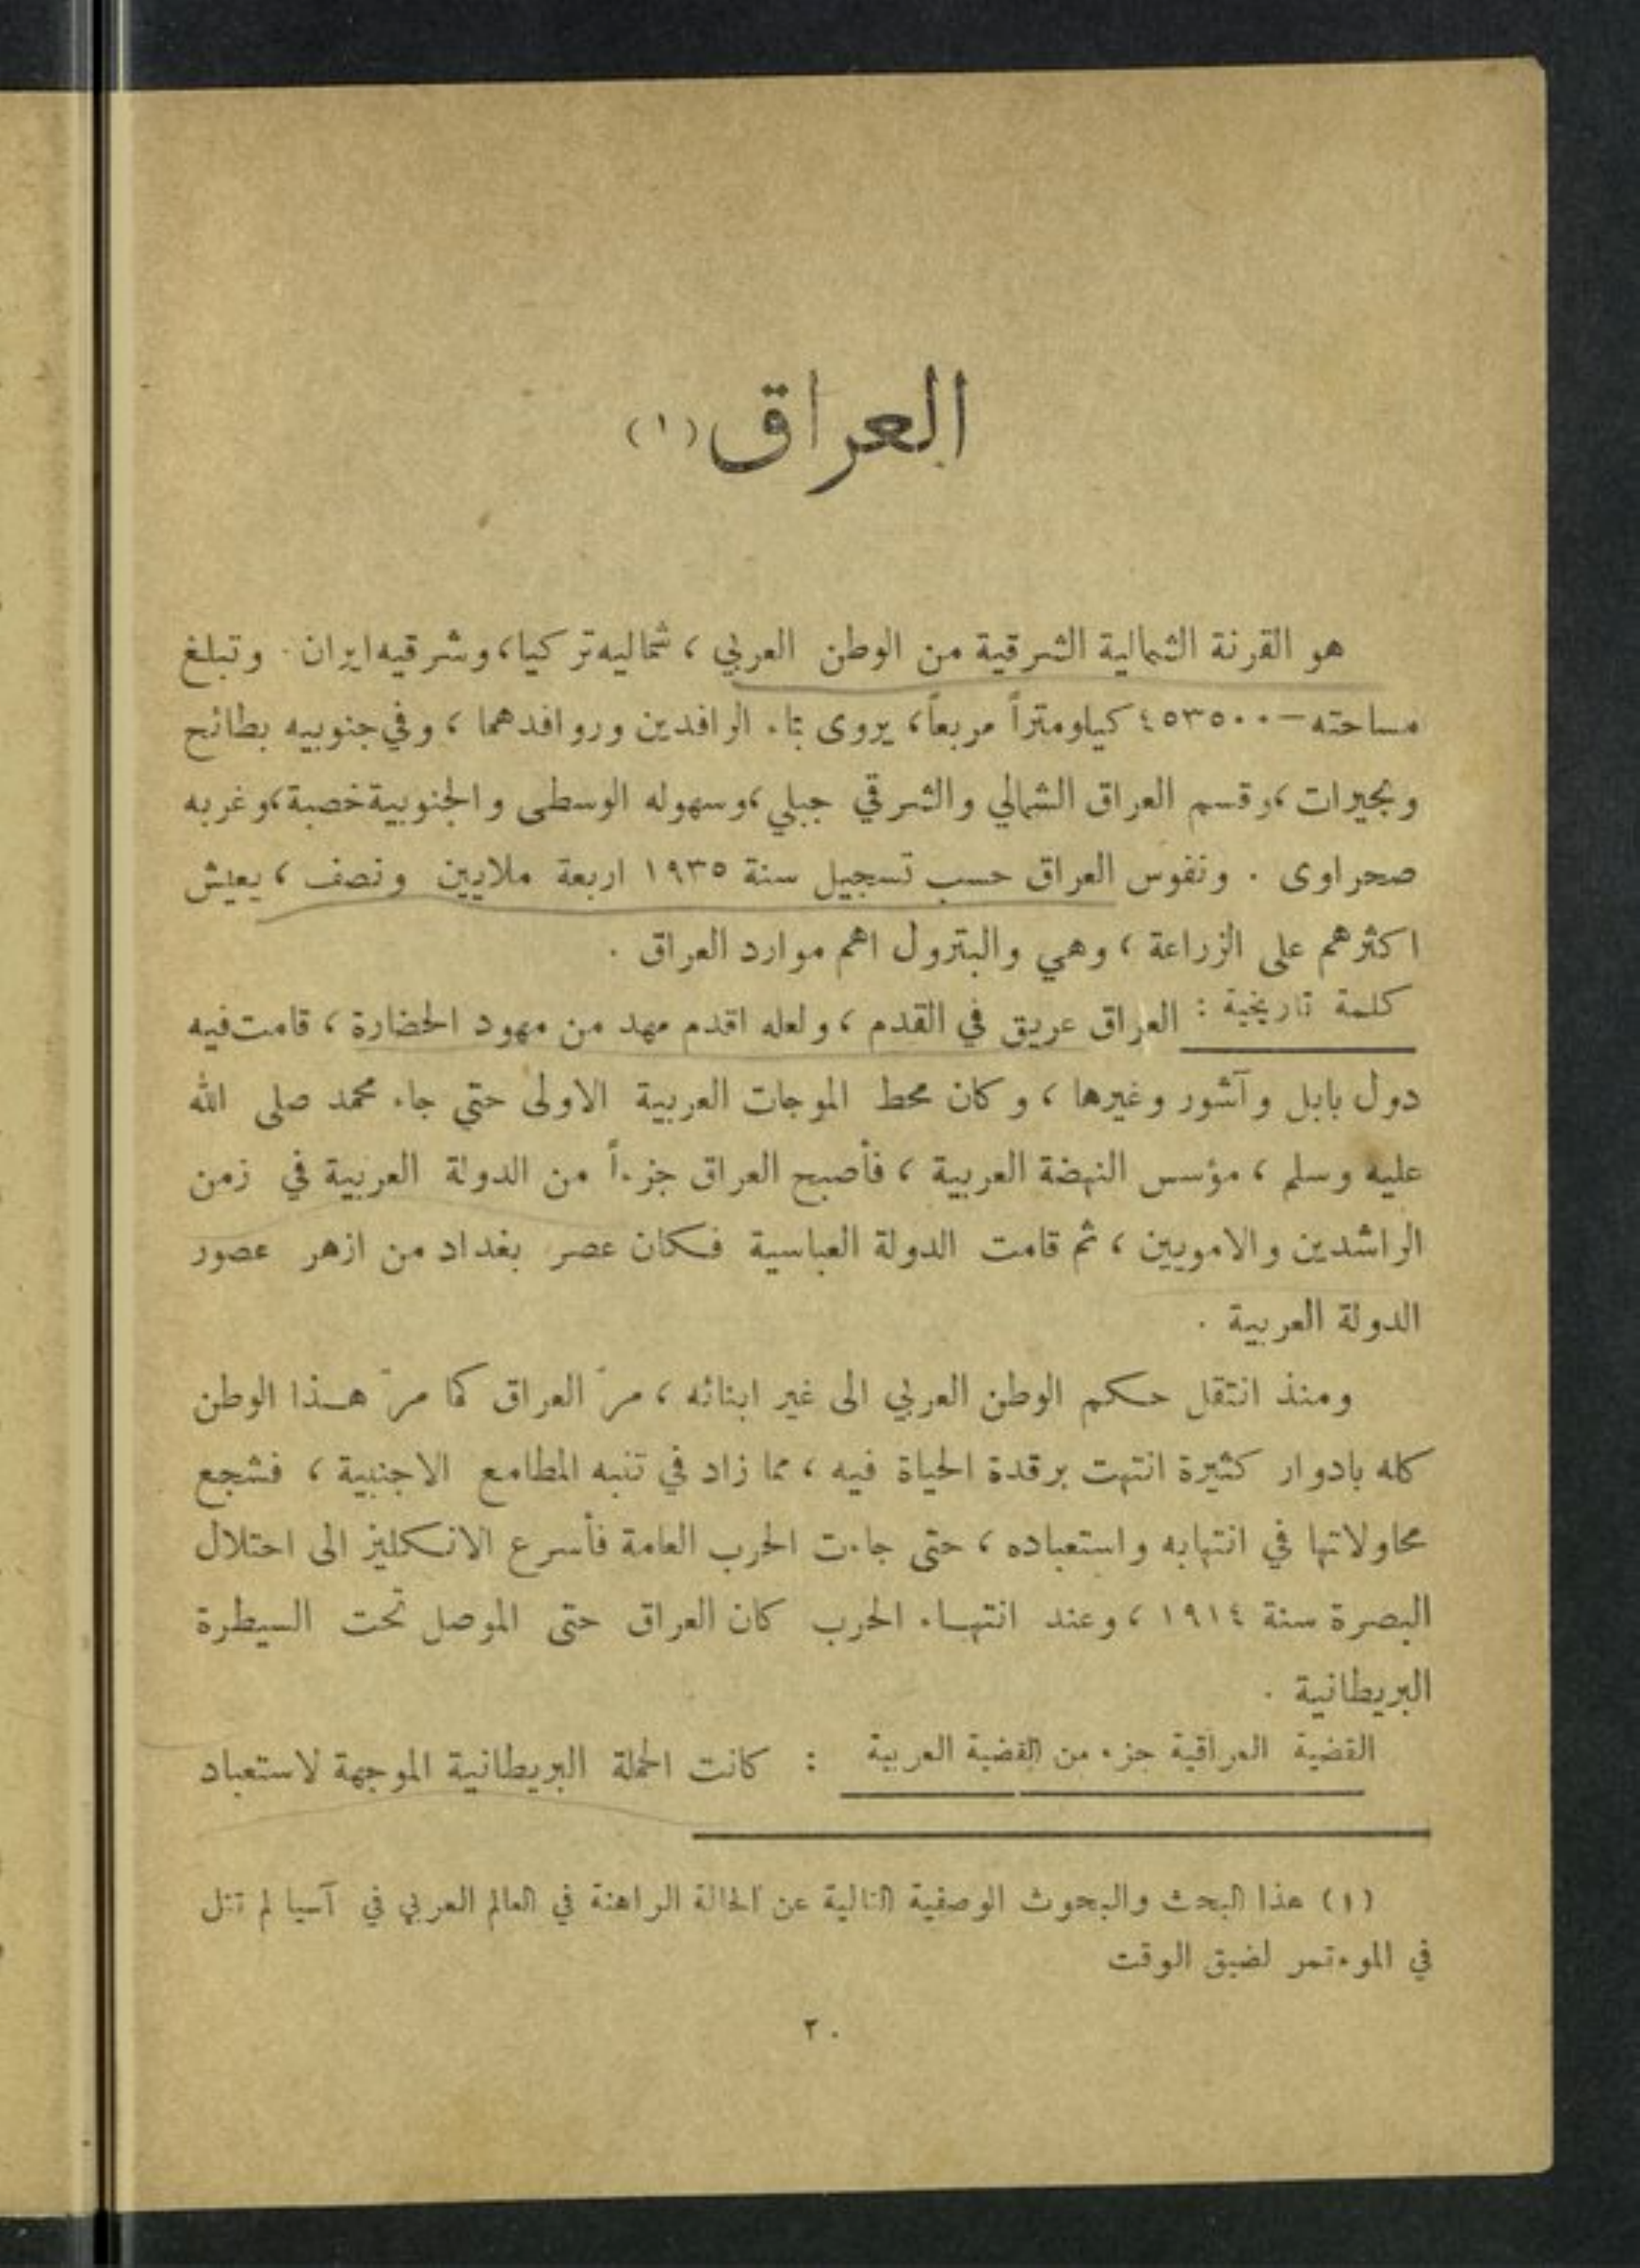 العراق (١)
هو القرنة الشمالية الشرقية من الوطن العربي ، شماليه تركيا، وشرقيه ايران . وتبلغ
مساحته – ٤٥٣٥٠٠ كيلومتراً مربعاً، يروى بماء الرافدين وروافدهما ، وفي جنوبيه بطائح
وبحيرات ، وقسم العراق الشمالي والشرقي جبلي ، وسهوله الوسطى والجنوبية خصبة ، وغربه
صحراوى . ونفوس العراق حسب تسجيل سنة ١٩٣٥ اربعة ملايين ونصف ، يعيش
اكثرهم على الزراعة ، وهي والبترول اهم موارد العراق .
كلمة تاريخية : العراق عريق في القدم ، ولعله اقدم مهد من مهود الحضارة ، قامت فيه
دول بابل وآشور وغيرها ، وكان محط الموجات العربية الاولى حتى جاء محمد صلى الله
عليه وسلم ، مؤسس النهضة العربية ، فأصبح العراق جزءاً من الدولة العربية في زمن
الراشدين والامويين ، ثم قامت الدولة العباسية فكان عصر بغداد من ازهر عصور
الدولة العربية .
ومنذ انتقل حكم الوطن العربي الى غير ابنائه ، مرّ العراق كما مرّ هذا الوطن
كله بادوار كثيرة انتهت برقدة الحياة فيه ، مما زاد في تنبه المطامع الاجنبية ، فشجع
محاولاتها في انتهابه واستعباده ، حتى جاءت الحرب العامة فأسرع الانكليز الى احتلال
البصرة سنة ١٩١٤ ، وعند انتهاء الحرب كان العراق حتى الموصل تحت السيطرة
البريطانية .
القضية العراقية جزء من القضية العربية : كانت الحملة البريطانية الموجهة لاستعباد
(١) هذا البحث والبحوث الوصفية التالية عن الحالة الراهنة في العالم العربي في آسيا لم تتل
في الموءتمر لضيق الوقت
٢٠